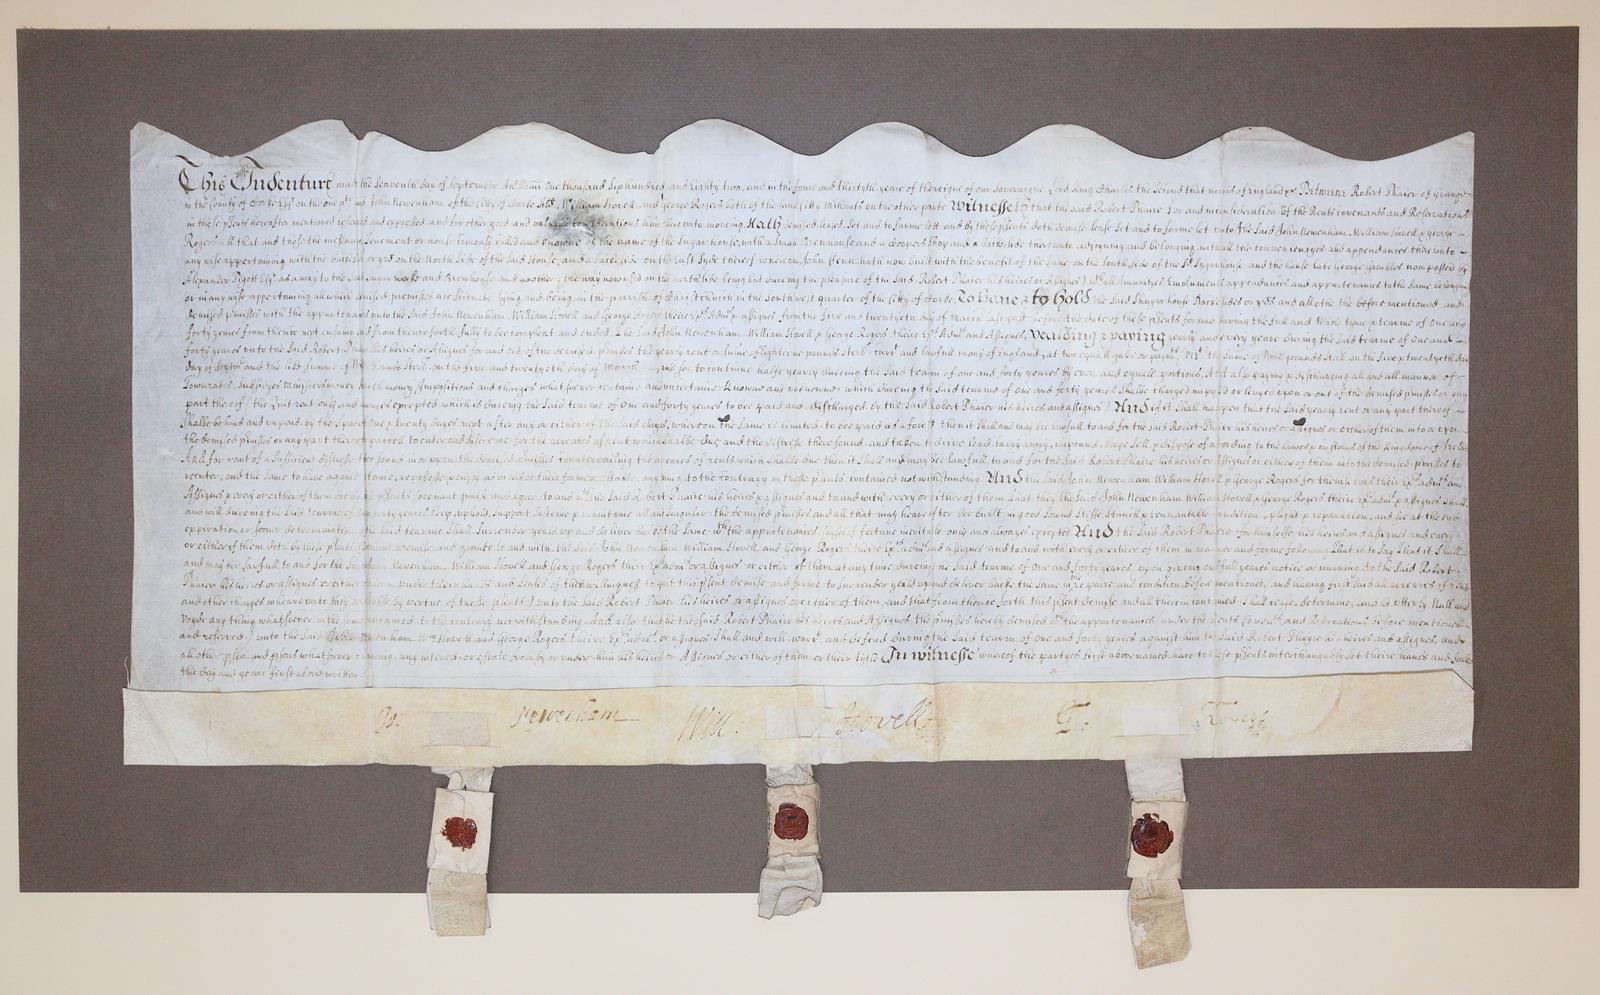 This Indenture made the Seaventh day of September Ano Domi One thousand Six hundred and Eighty two, and in the foure and thirtyth yeare of the reigne of our Soveraigne Lord King Charles the Second that now is of England &c Betweene Robert Phaier of Grange
in the County of Corke Esqr on the one pte and John Newenham of the City of Corke Ald. William Hovell and George Rogers both of the same City Mrchants on the other parte Witnesseth that the said Robert Phaire for and in consideration of the Rents covenants and Reservations
in these psents hereafter mentioned and expressed and for other good and valuable considerations him thereunto moveing Hath demised leased Set and to farme lett and by these psents doth demise lease Set and to farme let unto the Said John Newenham William Hovell & George
Rogers All that and those the messuage Tenement or house comonly called and knowne by the name of the Sugar house, with a Small Brewhouse and a Coopers Shop and a Backside thereunto adjoyning and belonging with all the conveniencyes and appendances thereunto
any wise appertaining with the backside or yard on the North Side of the Said House, and a Backside on the East Syde thereof whereon John Penn hath now built with the benefit of the lane on the South Side of the Sd Sugarhouse and the house late George Gambles now possed by
Alexander Pigott Esqr as a way to the Said Sugar work and Brewhouse and another the way now used on the north Side being but dureing the pleasure of the Said Robert Phaire his heires or Assignes) with all Imunityes Emoluments appendances and appurtenances to the Same belonging
or in any wise appertaining all which demised premisses are Scituate lying and being in the parrish of Christ Church in the Southwest quarter of the City of Corke, To Have & to hold the Said Shugar house Backsides or yds and all other the before mentioned and
demised pmisses with the appurtenances unto the Said John Newenham, William Hovell and George Rogers their Exrs Admrs & assignes from the five and twentyeth day of March last past before the date of these psents for and dureing the full and Whole tyme & tearme of One and
forty yeares from thence next ensueing and from thenceforth fully to be compleat and ended. The Said John Newenham William Hovell & George Rogers their Exrs Admrs and Assignes, Yealding & paying yearly and every yeare dureing the Said tearme of One and
forty yeares unto the Said Robert Phaire his heires or Assignes for and out of the demised pmisses the yearly rent or Sume of Eighteene pounds Sterl. currt and lawfull mony of England, at two equall gales or paymts vizt the Sume of Nine pounds Sterl. on the five & twentyeth day
day of Septem and the like Summe of Nine pounds Sterl. on the five and twentyeth day of March and soe to continue halfe yearly dureing the Said tearm of one and forty yeares by even and equall portions, And also paying & discharging all and all manner of
Countrates Subsidyes Ministers money Smoak money Impositions and charges whatsoever certaine and uncertaine knowne and unknowne which dureing the Said tearme of One and forty yeares Shalbe charged imposed or leavyed upon or out of the demised pmisses or any
part thereof (the Quitrent only and always excepted which is dureing the Said tearme of One and forty yeares to bee paid and discharged by the Said Robert Phaier his heires and assignes) And if it Shall happen that the Said yearly rent or any part thereof
Shalbe behind and unpaid by the Space of One & twenty dayes next after any or either of the Said days, whereon the Same is limited to bee paid as aforesd then it Shall and may bee lawfull to and for the Said Robert Phaier his heires or assignes or either of them into or upon
the demised pmisses or any part thereof or parcell to enter and distreine for the arreares of rent which Shalbe due and the distresse there found and taken to drive lead carry away, impound keepe Sell & dispose of according to the Lawes & customs of the Kingdome of Ireland
And for want of a Sufficient distresse to bee found in or upon the demised pmisses countervailing the arreares of rents which Shalbe due then it Shall and may bee lawfull to and for the Said Robert Phaire his heires or assignes or either of them into the demised pmisses to
reenter, and the Same to have againe and repossesse & enjoy as in his or their former estate, any thing to the contrary in these psents contained notwithstanding. And the Said John Newenham William Hovell & George Rogers for themselves their Exrs admrs and
Assignes & every or either of them doe by these psents covenant pmise and agree to and with the Said Robert Phaire his heires & assignes and to and with every or either of them That they the Said John Newenham William Hovell & George Rogers theire Exrs admrs & assignes Shall
and will dureing the Said tearme of One & forty yeares keep uphold, Support Susteine & maintaine all and Singular the demised pmisses and all that may heareafter bee built in good Sound Stiffe Stanch & tennantable condition, plight & reparation, and soe at the end
expiration or Sooner determination of the Said tearme Shall Surrender yeald up and deliver backe the Same wth the appurtenances (casual fortune inevitable only and always except) And the Said Robert Phaire for himselfe his heires and assignes and every
or either of them doth by these psents Covenant promise and graunte to and with the Said John Newenham William Hovell and George Rogers theire Exrs admrs and assignes and to and with every or either of them in manner and forme following That is to Say That it Shall
and may bee lawfull to and for the Said John Newenham William Hovell and George Rogers their Exrs admrs or assignes or either of them at any time dureing the Said tearme of One and forty yeares upon giveing one full yeares notice or warning to the Said Robert
Phaier his heires or assignes or either of them under their hands and Seales of their willingnes to quit this psent demise and farme to Surrender yeald up and deliver back the Same in the repaire and condition before mentioned, and haveing first paid all arreares of rent
and other charges wheareunto they are lyable by vertue of these psents) unto the Said Robert Phaier his heires or assignes or either of them, and that from thence forth this psent demise and all therein contained Shall cease, determine, and be utterly Null and
voyde any thing whatsoever in the Same contained to the contrary notwithstanding. And also that he the Said Robert Phaire his heires and Assignes the pmisses hereby demised wth the appurtenances under the Rents Covents and Reservations before mentioned
and reserved unto the Said John Newenham Wm Hovell and George Rogers theire Exrs admrs or assignes Shall and will warrt and defend dureing the Said tearm of One and forty yeares against him the Said Robert Phayre his heires and assignes, and
all other pson and psons whatsoever claiming any interest or estate from by or under him his heires or Assignes or either of them or their tytle In witnesse whereof the partyes first above named have to these psents interchangably Set theire hands and Seales
the day and yeare first above written
Jo. Newenham Will. Hovell G: Rogers